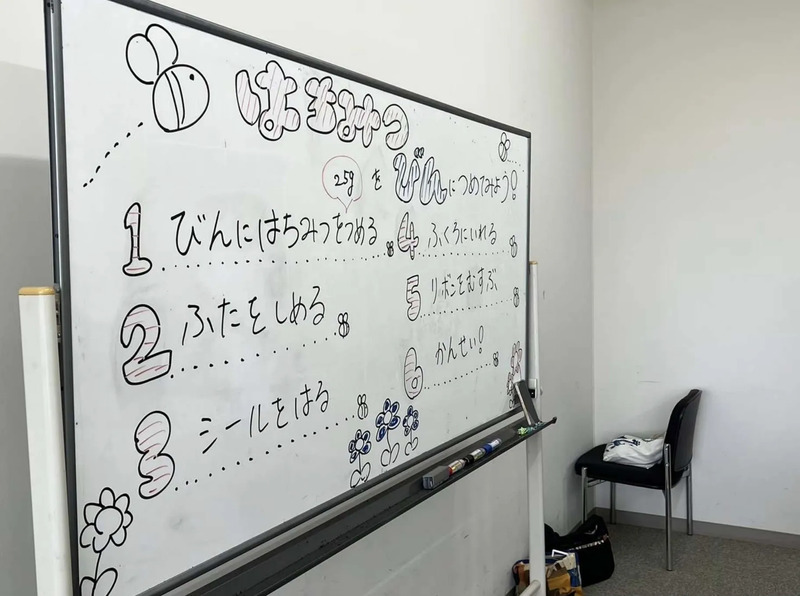 はちみつ
25g を びんにつめてみよう!
1 びんにはちみつをつめる
2 ふたをしめる
3 シールをはる
4 ふくろにいれる
5 リボンをむすぶ
6 かんせい!